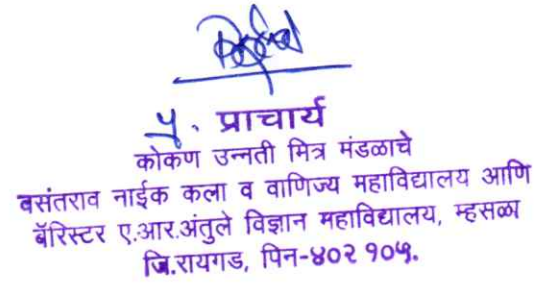 प्र. प्राचार्य
कोकण उन्नती मित्र मंडळाचे
वसंतराव नाईक कला व वाणिज्य महाविद्यालय आणि
बॅरिस्टर ए.आर.अंतुले विज्ञान महाविद्यालय, म्हसळा
जि.रायगड, पिन-४०२ १०५.